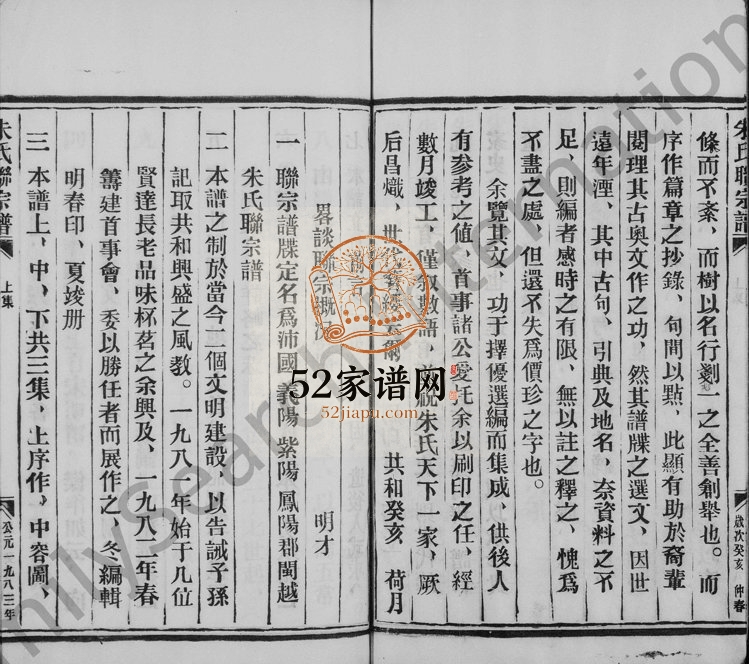 朱氏聯宗譜
歲次癸亥 仲春
條而不紊，而樹以名行劃一之全善創舉也。而
序作篇章之抄錄，句間以點，此顯有助於裔輩
閱理其古奧文作之功，然其譜牒之選文，因世
遠年湮，其中古句，引典及地名，奈資料之不
足，則編者感時之有限，無以註之釋之，愧爲
不盡之處，但還不失爲價珍之字也。
余覽其文，功于擇優選編而集成，供後人
有參考之值，首事諸公爰托余以刷印之任，經
數月竣工，僅敘數語，朱氏天下一家，厥
后昌熾，世
共和癸亥 荷月
明才
畧談聯宗概況
一 聯宗譜牒定名爲沛國 義陽 紫陽 鳳陽郡閩越
朱氏聯宗譜
二 本譜之制於當今二個文明建設，以告誡子孫
記取共和興盛之風教。一九八一年始于几位
賢達長老品味杯茗之余興及，一九八二年春
籌建首事會，委以勝任者而展作之，冬編輯
明春印，夏竣册
三 本譜上，中，下共三集 上序作，中容圖，
朱氏聯宗譜
上集
公元一九八三年
52家谱网
52jiapu.com
milysearch International